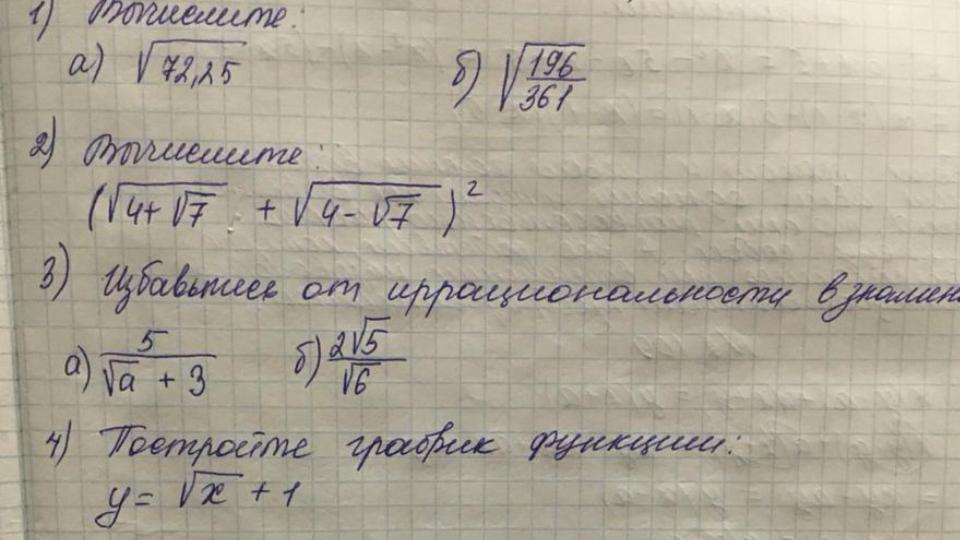 1) Вычислите:
а) √72,25 б) √196/361
2) Вычислите:
(√4+√7 + √4-√7)²
3) Избавьтесь от иррациональности в знамен
а) 5/√a + 3 б) 2√5/√6
4) Постройте график функции:
y = √x + 1